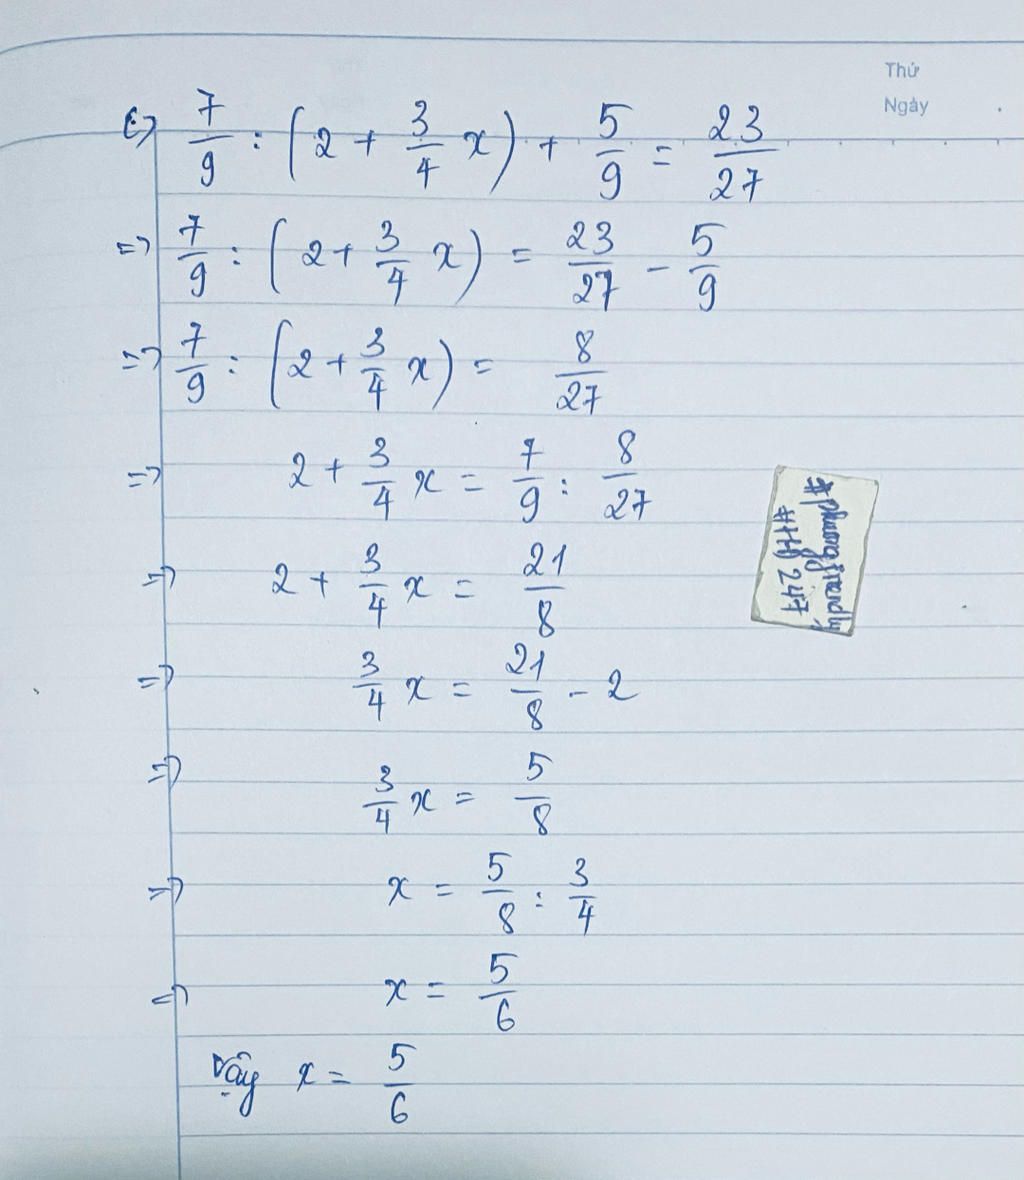 Thứ
Ngày
c) 7/9 : (2 + 3/4 x) + 5/9 = 23/27
=> 7/9 : (2 + 3/4 x) = 23/27 - 5/9
=> 7/9 : (2 + 3/4 x) = 8/27
=> 2 + 3/4 x = 7/9 : 8/27
=> 2 + 3/4 x = 21/8
=> 3/4 x = 21/8 - 2
=> 3/4 x = 5/8
=> x = 5/8 : 3/4
=> x = 5/6
Vậy x = 5/6
#phuongfriendly
#hđ 247